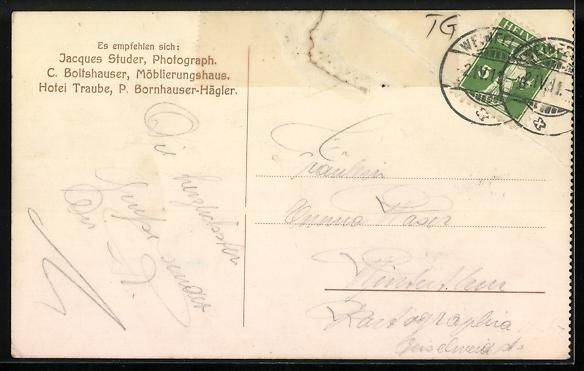 Es empfehlen sich:
Jacques Studer, Photograph.
C. Boltshauser, Möblierungshaus.
Hotel Traube, P. Bornhauser-Hägler.
TG
HELVETIA
5
Die herzlichsten
Grüsse sendet
Fräulein
Emma
Winterthur
Kartographia